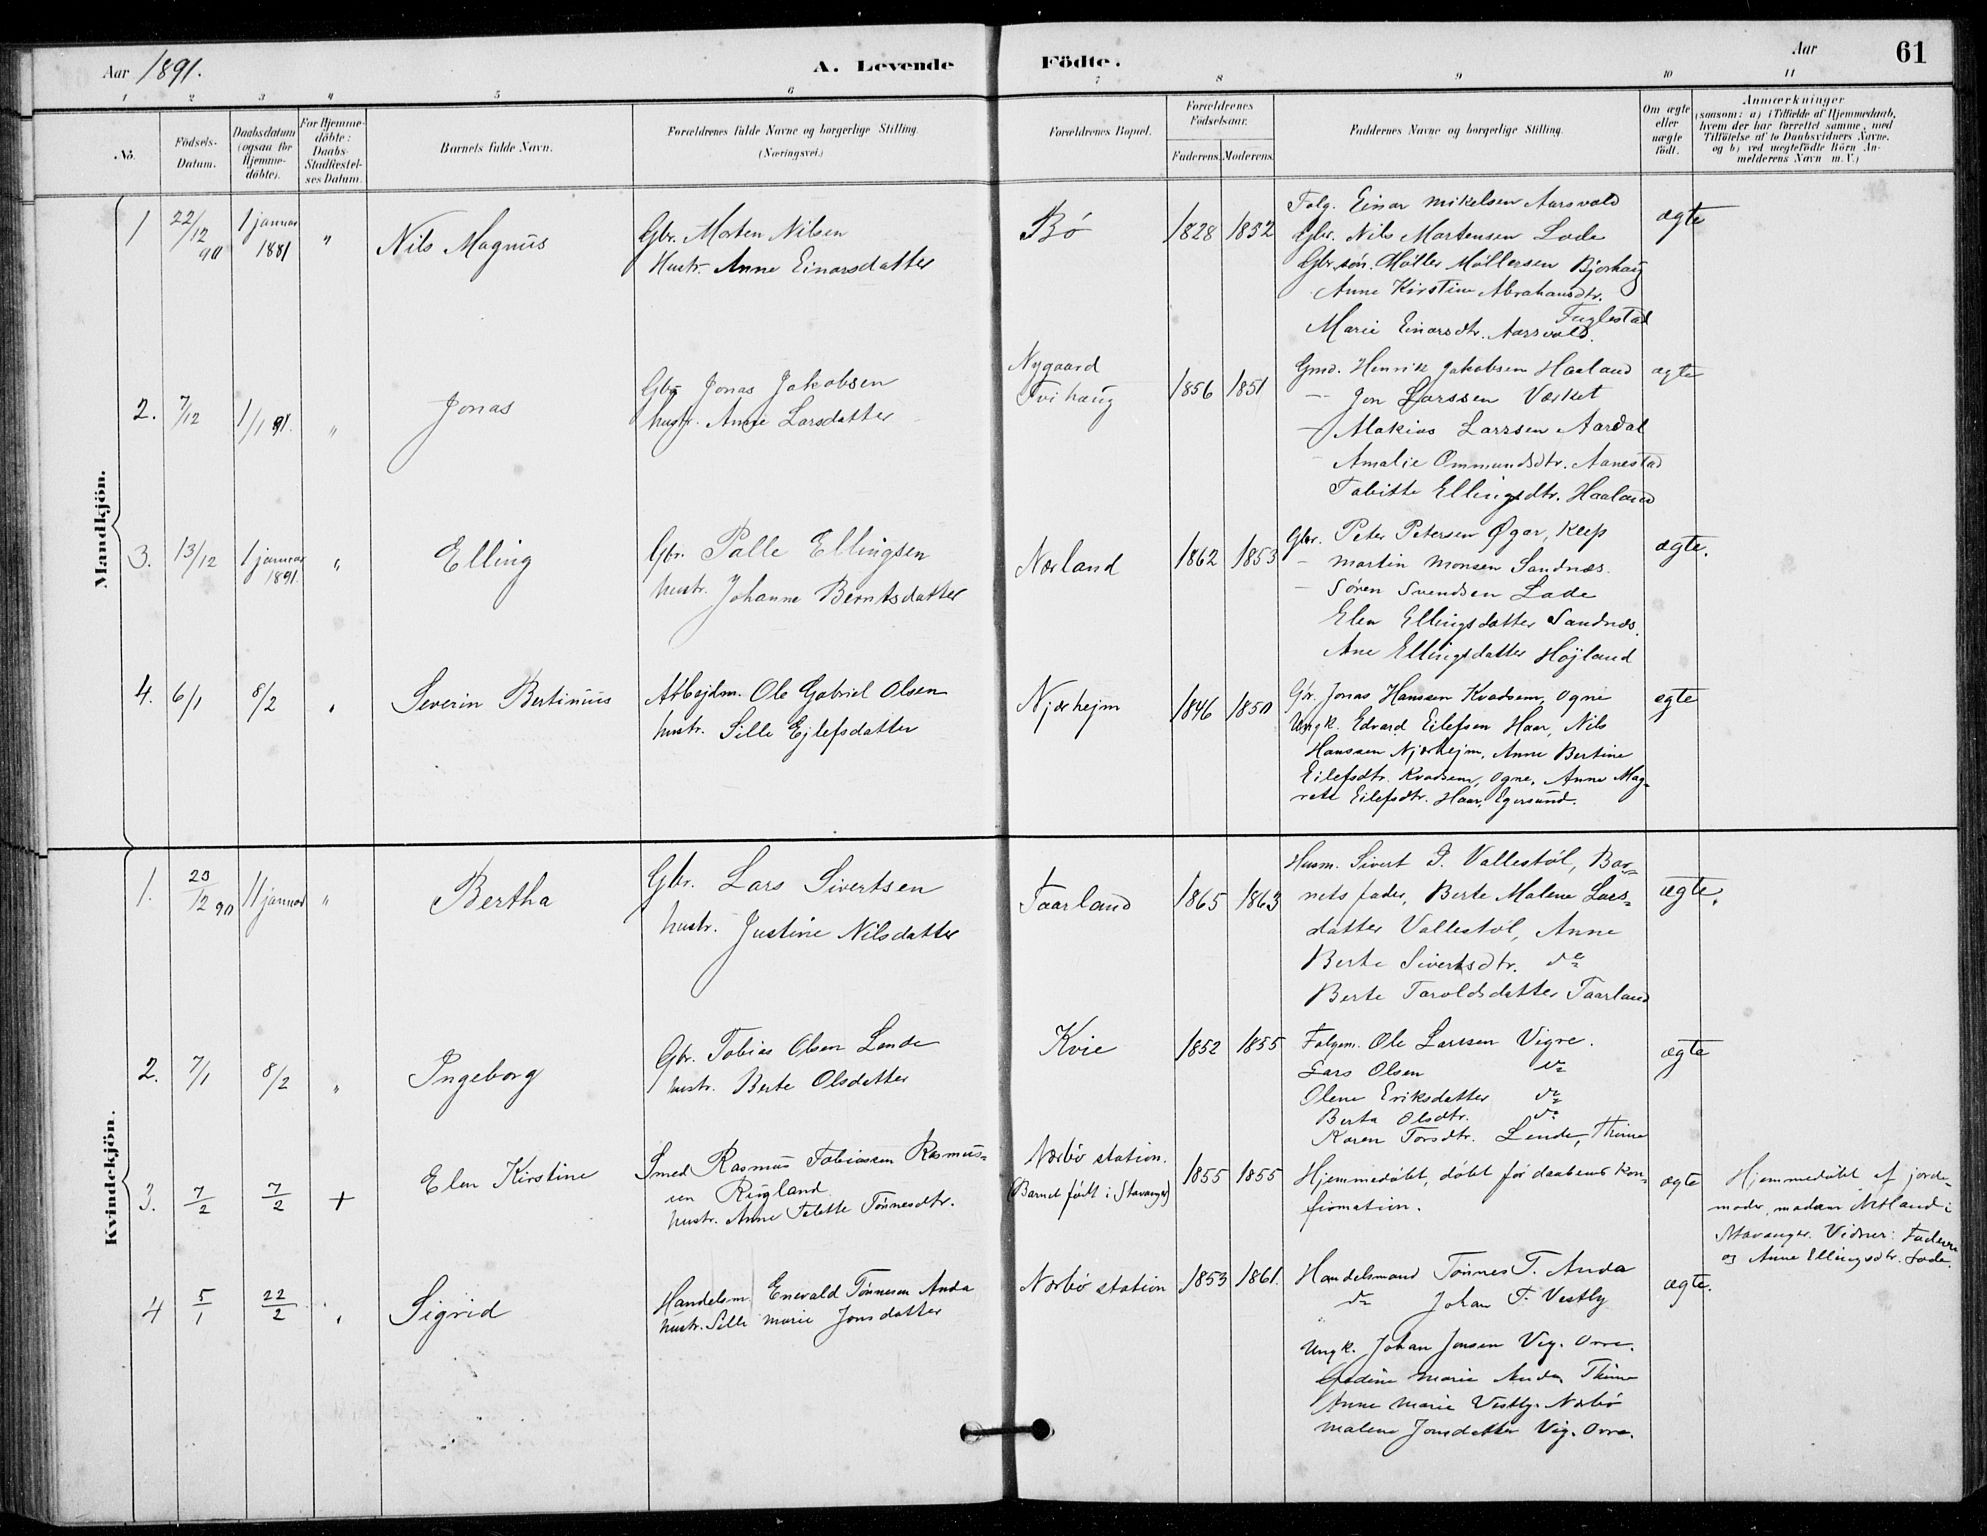 Aar 1891.
A. Levende Födte.
Aar
61
1 2 3 4 5 6 7 8 9 10 11
No.
Födsels-Datum.
Daabsdatum (ogsaa for Hjemme-döbte).
For Hjemme-döbte: Daabs-Stadfæstel-ses Datum.
Barnets fulde Navn.
Forældrenes fulde Navne og borgerlige Stilling.
(Næringsvei.)
Forældrenes Bopæl.
Forældrenes Födselsaar.
Faderens. Moderens.
Faddernes Navne og borgerlig Stilling.
Om ægte eller uægte födt.
Anmærkninger
(saasom: a) i Tilfælde af Hjemmedaab, hvem der har forrettet samme, med Tilföielse af to Daabsvidners Navne, og b) ved uægtefödte Börn Anmelderens Navn m. V.)
Mandkjön.
1 22/12 90 1 januar 1881 " Nils Magnus
Gbr. Morten Nilsen
Hustr. Anne Einarsdatter
Bö 1828 1852
Folg. Einar Mikelsen Aarsvold
Gbr. Nils Mortensen Lode
Gbr.søn. Møller Møllersen Bjorhaug
Anne Kirstine Abrahamsdtr.
Fuglestad
Marie Einarsdtr. Aarsvold.
ægte
2. 7/12 1/1 91. " Jonas
Gbr Jonas Jakobsen
hustr. Anne Larsdatter
Nygaard
Tvihaug
1856 1851
Gmd. Henrik Jakobsen Haaland
– Jon Larssen Værket
– Makias Larssen Aardal
– Amalie Ommundsdtr. Aanestad
Tobitte Ellingsdtr. Haaland
ægte
3. 13/12 1 januar 1891. " Elling
Gbr. Palle Ellingsen
hustr. Johanne Berntsdatter
Nærland 1862 1853
Gbr. Peter Petersen Øgar, Klep
– Martin Monsen Sandnæs.
– Søren Svendsen Lode
Elen Ellingsdatter Sandnæs.
Ane Ellingsdatter Højland
ægte.
4. 6/1 8/2 " Severin Bertinius
Arbejdm. Ole Gabriel Olsen
hustr. Sille Ejlefsdatter
Njærhejm 1846 1850
Gbr. Jonas Hanssen Kvadsem, Ogne
Ungk. Edvard Eilefsen Haar, Nils
Hanssen Njærhejm, Anne Bertine
Eilefsdtr. Kvadsem, Ogne, Anne Mag-
rete Eilefsdtr. Haar, Egersund.
ægte
Kvindekjön.
1. 20/12 90 11 januar " Bertha
Gbr. Lars Sivertsen
hustr. Justine Nilsdatter
Taarland 1865 1863
Husm. Sivert I. Vallestøl, Bar-
nets fader, Berte Malene Lars-
datter Vallestøl, Anne
Berte Sivertsdtr. do
Berte Taroldsdatter Taarland
ægte.
2. 7/1 8/2 " Ingeborg
Gbr. Tobias Olsen Lende
hustr. Berte Olsdatter
Kvie 1852 1855
Folgem. Ole Larssen Vigre.
Lars Olsen do
Olene Eriksdatter do
Berta Olsdtr. do
Karen Torsdtr. Lende, Thime
ægte
3. 7/2 7/2 + Elen Kirstine
Smed Rasmus Tobiassen Rasmus-
sen Rugland
hustr. Anne Talette Tønnesdtr.
Nærbø station.
(Barnet født i Stavanger)
1855 1855
Hjemmedøbt, døbt før daabens kon-
firmation.
ægte
Hjemmedøbt af jorde-
moder, madam Netland i
Stavanger. Vidner: Faderen
og Anne Ellingsdtr. Lode.
4 5/1 22/2 " Sigrid
Handelsm. Enevald Tønnesen Anda
hustr. Sille Marie Jonsdatter
Nærbø station 1853 1861.
Handelsmand Tønnes T. Anda
do Johan T. Vestly
Ungk. Johan Jonsen Vig. Orre.
Marie Anda Thime
Anne Marie Vestly. Nærbø
Malene Jonsdatter Vig. Orre.
ægte.